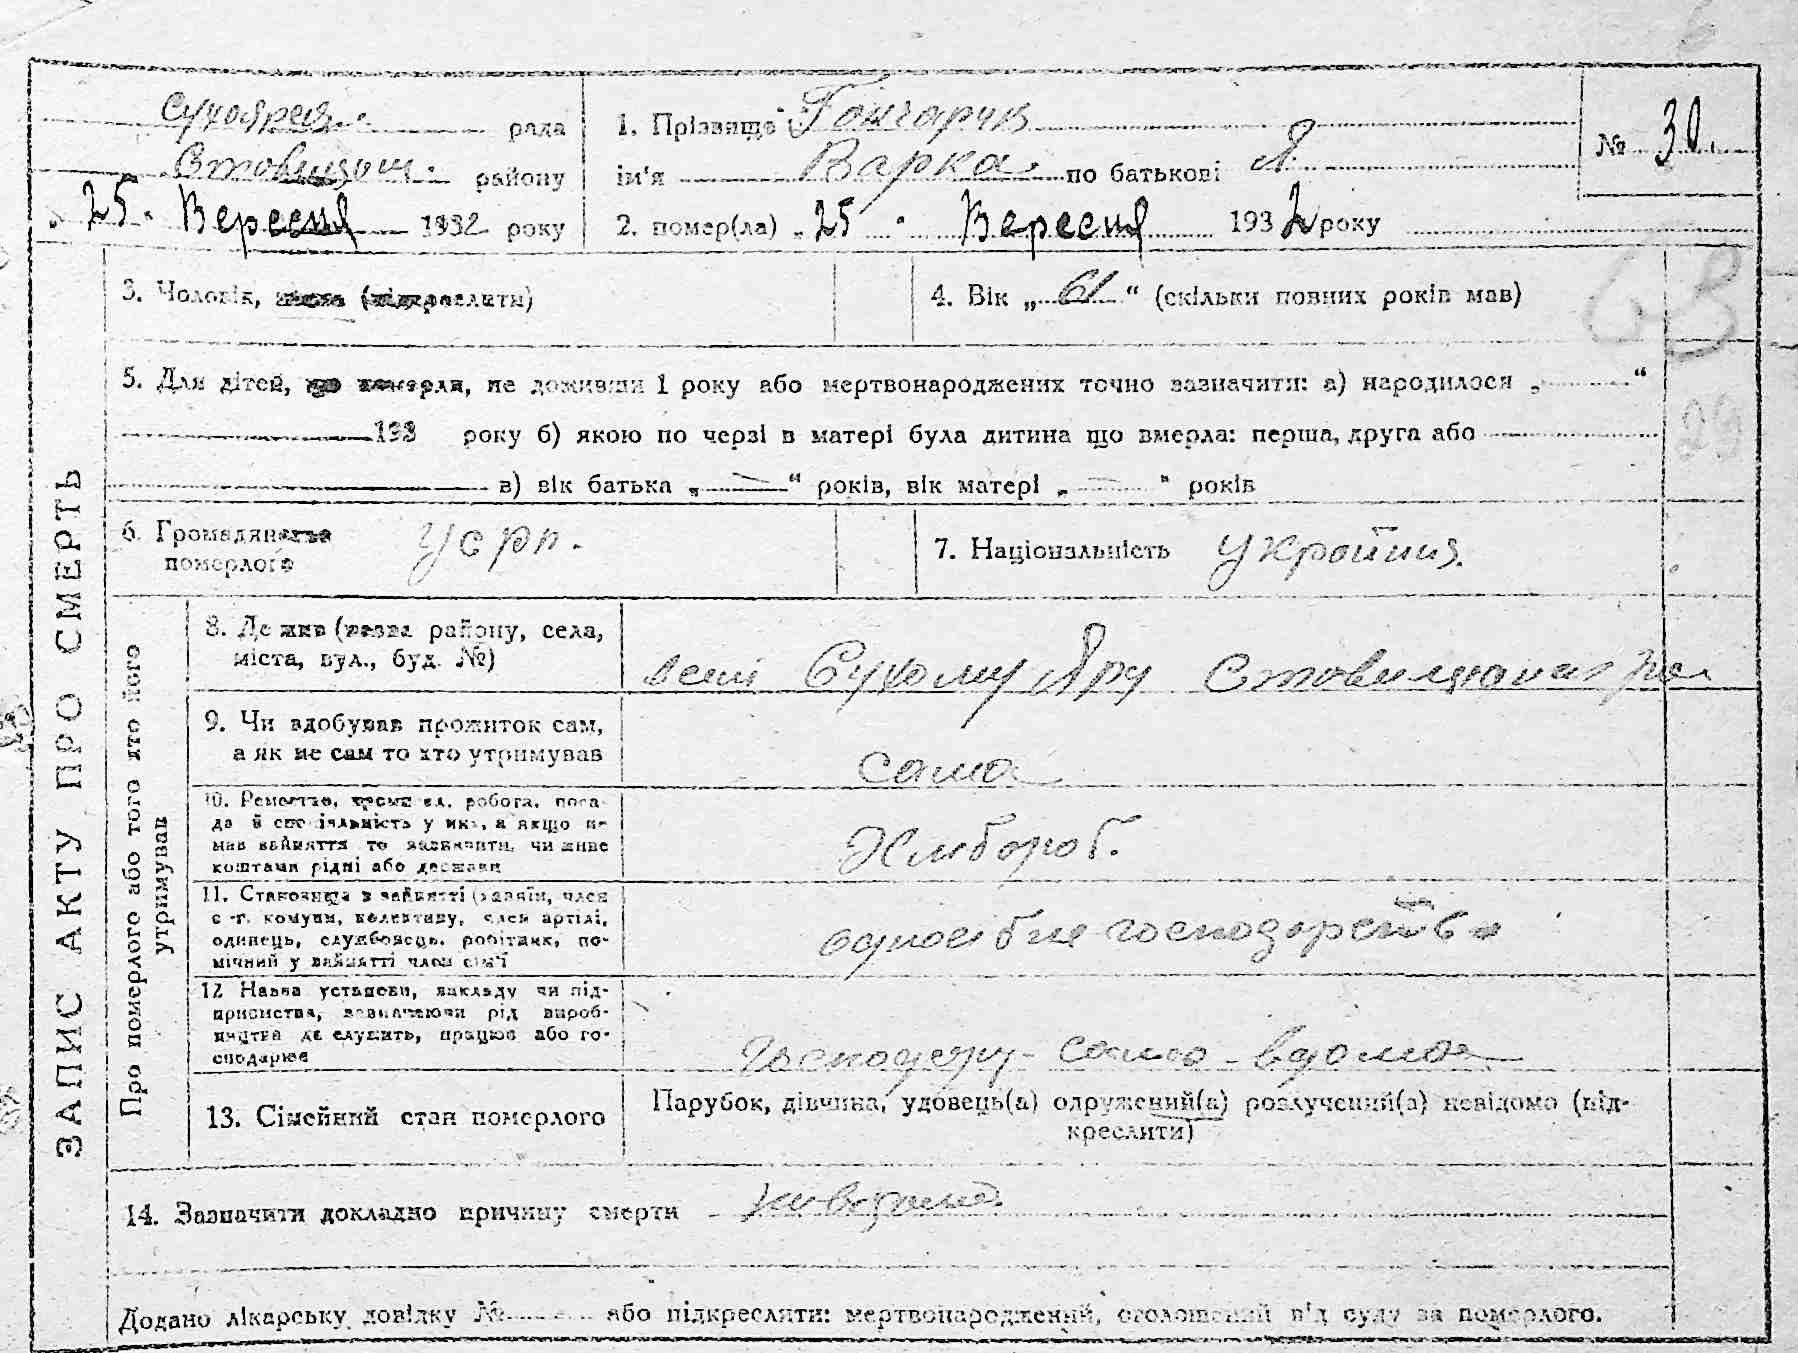 Сухоярська рада
Ставищан. району
„ 25. Вересня 1932 року
1. Прізвище Гончарук
ім'я Варка по батькові Я
2. помер(ла) „ 25. Вересня 1932 року
№ 30.
3. Чоловік, жінка (підкреслити)
4. Вік „ 61 “ (скільки повних років мав)
63
5. Для дітей, що померли, не доживши 1 року або мертвонароджених точно зазначити: а) народилося „ “
193 року б) якою по черзі в матері була дитина що вмерла: перша, друга або
29
в) вік батька „ — “ років, вік матері „ — “ років
6. Громадянство
померлого
Усрп.
7. Національність
ЗАПИС АКТУ ПРО СМЕРТЬ
Про померлого або того хто його
утримував
8. Де жив (назва району, села,
міста, вул., буд. №)
селі Сухому Яру
9. Чи здобував прожиток сам,
а як не сам то хто утримував
сама
10. Ремество, промисел, робота, поса-
да й спеціяльність у них, а якщо не
мав зайняття то зазначити, чи живе
коштами рідні або держави
Хлибороб.
11. Становище в зайнятті (хазяїн, член
с.-г. комуни, колективу, член артілі,
одинець, службовець, робітник, по-
мічний у зайнятті член сім'ї
12. Назва установи, закладу чи під-
приємства, зазначаючи рід вироб-
ництва де служить, працює або го-
сподарює
13. Сімейний стан померлого
Парубок, дівчина, удовець(а) одружений(а) розлучений(а) невідомо (під-
креслити)
14. Зазначити докладно причину смерти
Додано лікарську довідку № або підкреслити: мертвонароджений, оголошений від суду за померлого.